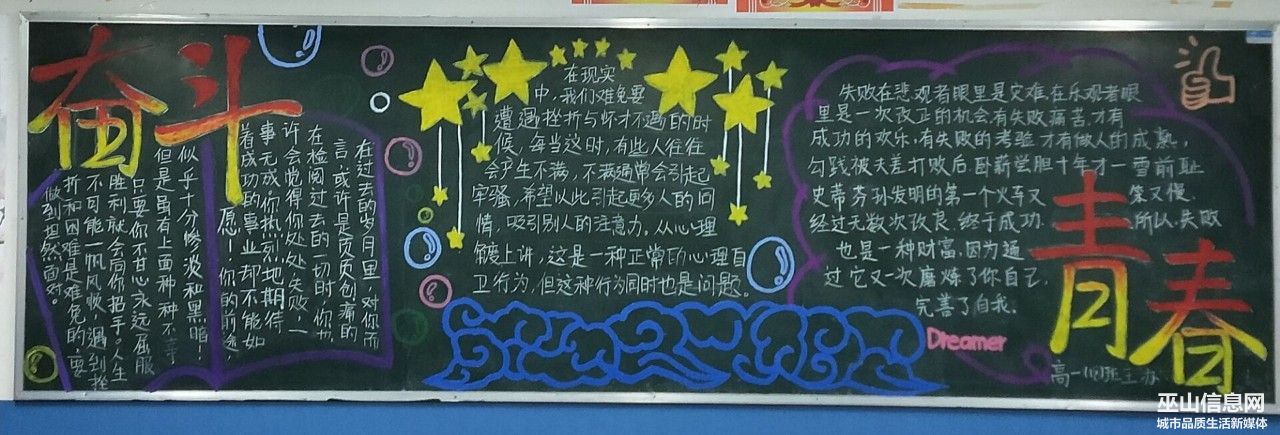 奋斗
在过去的岁月里，对你而
言，或许是页页创痛的
在检阅过去的一切时，你也
许会觉得你处处失败，一
事无成，你热烈地期待
着成功的事业却不能如
愿！你的前途
似乎十分惨淡和黑暗！
但是虽有上面种种不幸
只要你不甘心永远屈服
胜利就会向你招手。人生
不可能一帆风顺，遇到挫
折和困难是难免的，要
做到坦然面对。
在现实
中，我们难免要
遭遇挫折与怀才不遇的时
候，每当这时，有些人往往
会产生不满，不满通常会引起
牢骚，希望以此引起更多人的同
情，吸引别人的注意力。从心理
角度上讲，这是一种正常的心理自
卫行为，但这种行为同时也是问题。
失败在悲观者眼里是灾难，在乐观者眼
里是一次改正的机会，有失败痛苦，才有
成功的欢乐，有失败的考验，才有做人的成熟，
勾践被夫差打败后，卧薪尝胆十年才一雪前耻
史蒂芬孙发明的第一个火车又笨又慢，
经过无数次改良，终于成功，所以，失败
也是一种财富，因为通
过它又一次磨炼了你自己，
完善了自我。
青春
Dreamer
高一(四)班主办
巫山信息网
城市品质生活新媒体